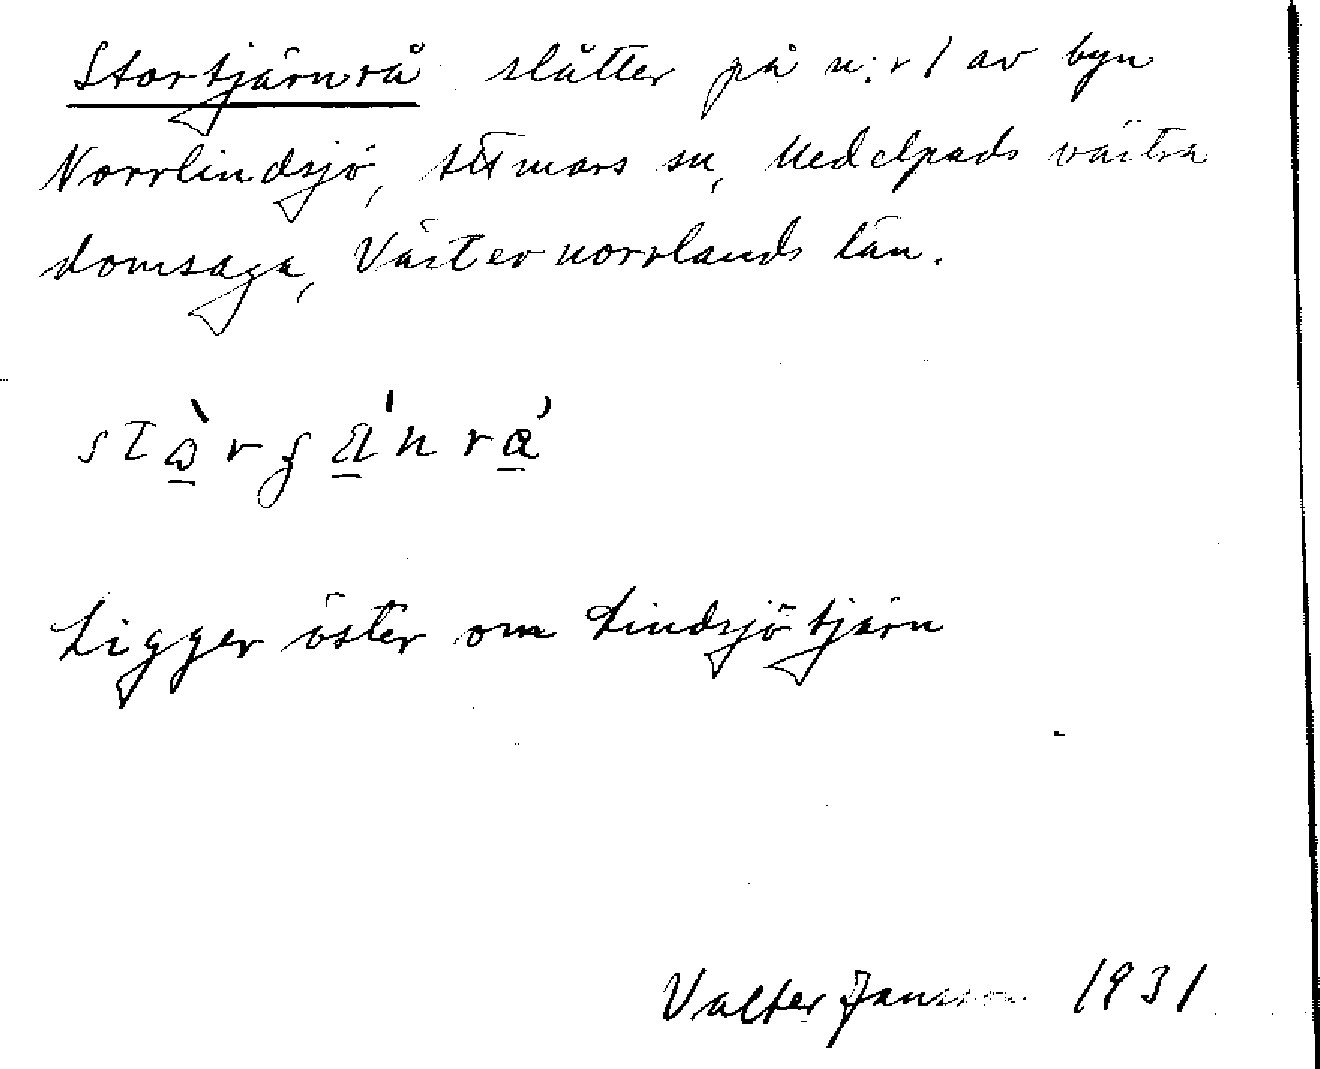 Stortjärnrå slåtter på n:r 1 av byn
Norrlindsjö, Attmars sn, Medelpads västra
domsaga, Västernorrlands län.
Ligger öster om Lindsjötjärn
Valter Jansson 1931